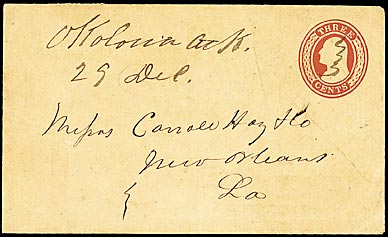 Okolona Ark.
29 Dec.
THREE
CENTS
Messrs Carroll Hoy & Co
New Orleans
La